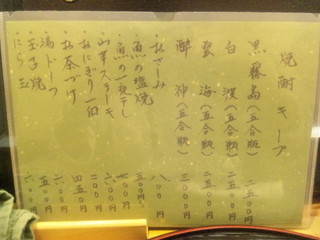 焼酎 キープ
黒霧島(五合瓶) 二五〇〇円
白波(五合瓶) 二五〇〇円
海(五合瓶) 二五〇〇円
酔神(五合瓶) 三〇〇〇円
おさしみ 八〇〇円
魚の塩焼
魚の一夜干し 七〇〇円
山芋ステーキ 五〇〇円
おにぎり一ヶ 二〇〇円
お茶づけ 四五〇円
湯ドーフ 六〇〇円
玉子焼 五〇〇円
にら玉 六〇〇円